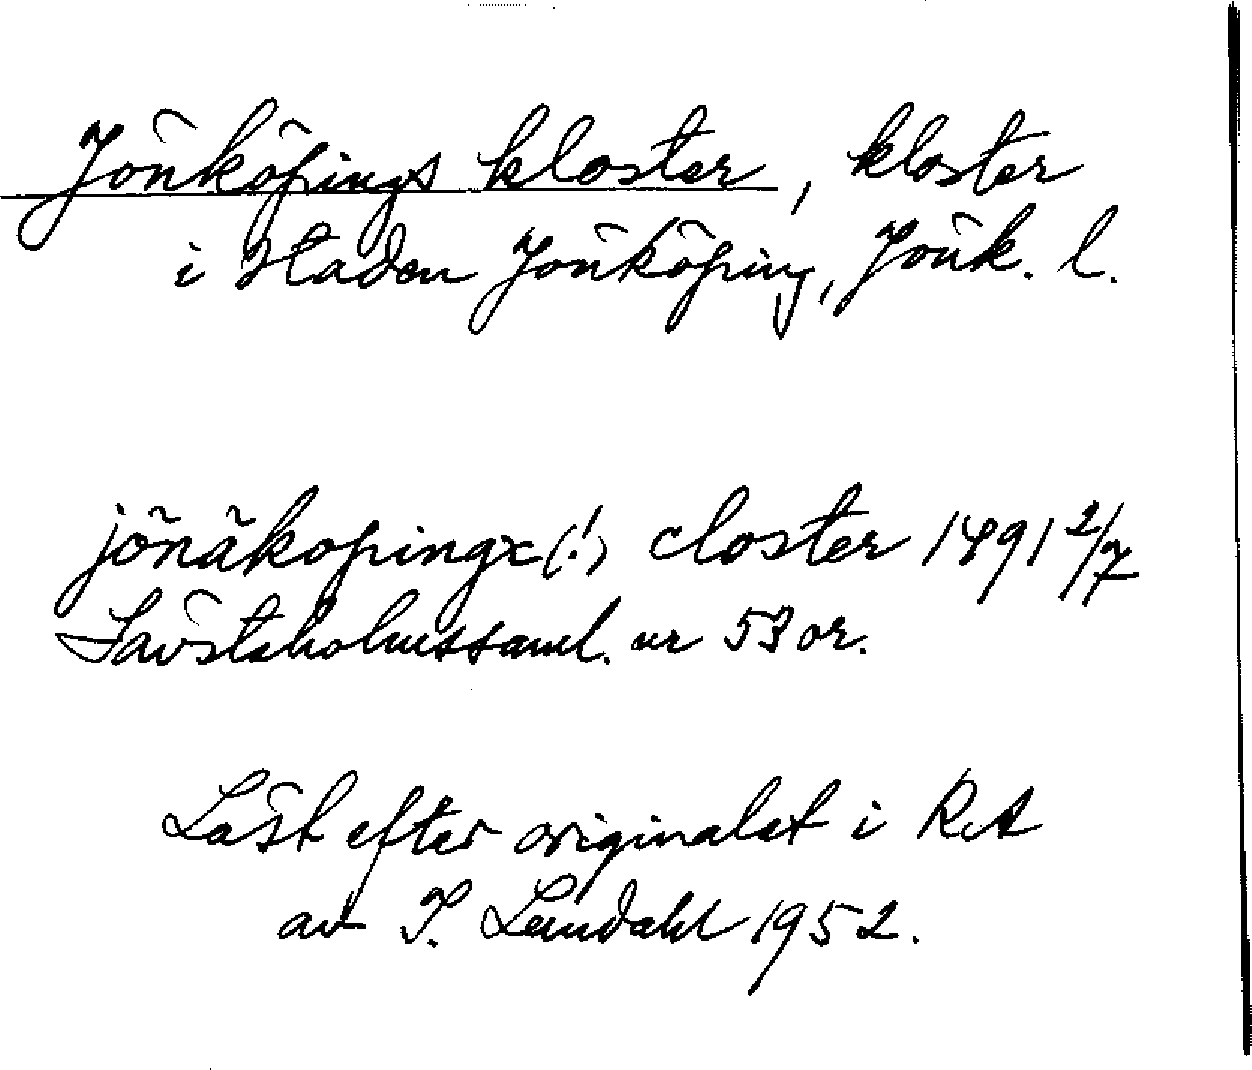 Jönköpings kloster, kloster
i staden Jönköping, Jönk. l.
jönäkopingx(!) closter 1491 2/7
Sävstaholmssaml. nr 53 or.
Läst efter originalet i RA
av I. Landahl 1952.